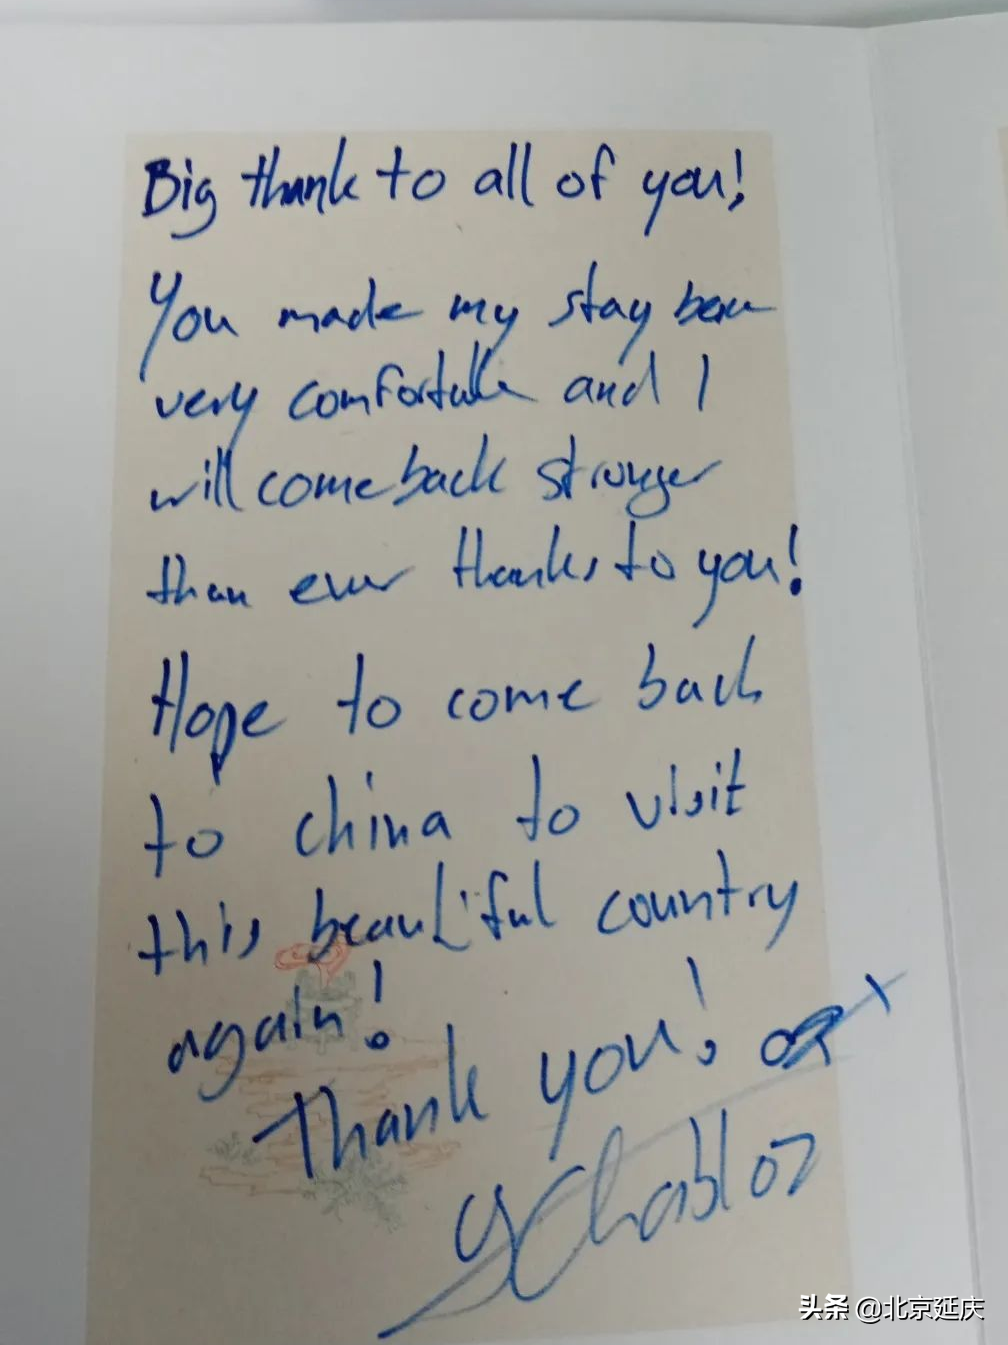 Big thank to all of you!
You made my stay been
very comfortable and I
will come back stronger
than ever thanks to you!
Hope to come back
to china to visit
this beautiful country
again!
Thank you!
Y Chabloz
头条 @北京延庆